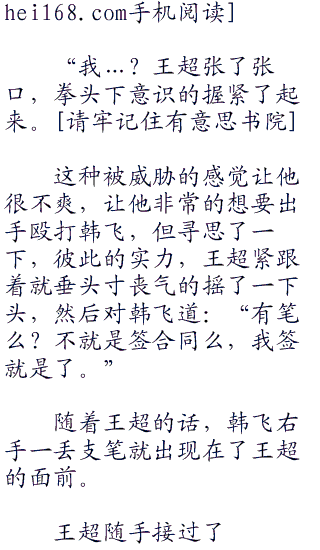 hei168.com手机阅读]
“我…?王超张了张
口，拳头下意识的握紧了起
来。[请牢记住有意思书院]
这种被威胁的感觉让他
很不爽，让他非常的想要出
手殴打韩飞，但寻思了一
下，彼此的实力，王超紧跟
着就垂头寸丧气的摇了一下
头，然后对韩飞道：“有笔
么？不就是签合同么，我签
就是了。”
随着王超的话，韩飞右
手一丢支笔就出现在了王超
的面前。
王超随手接过了